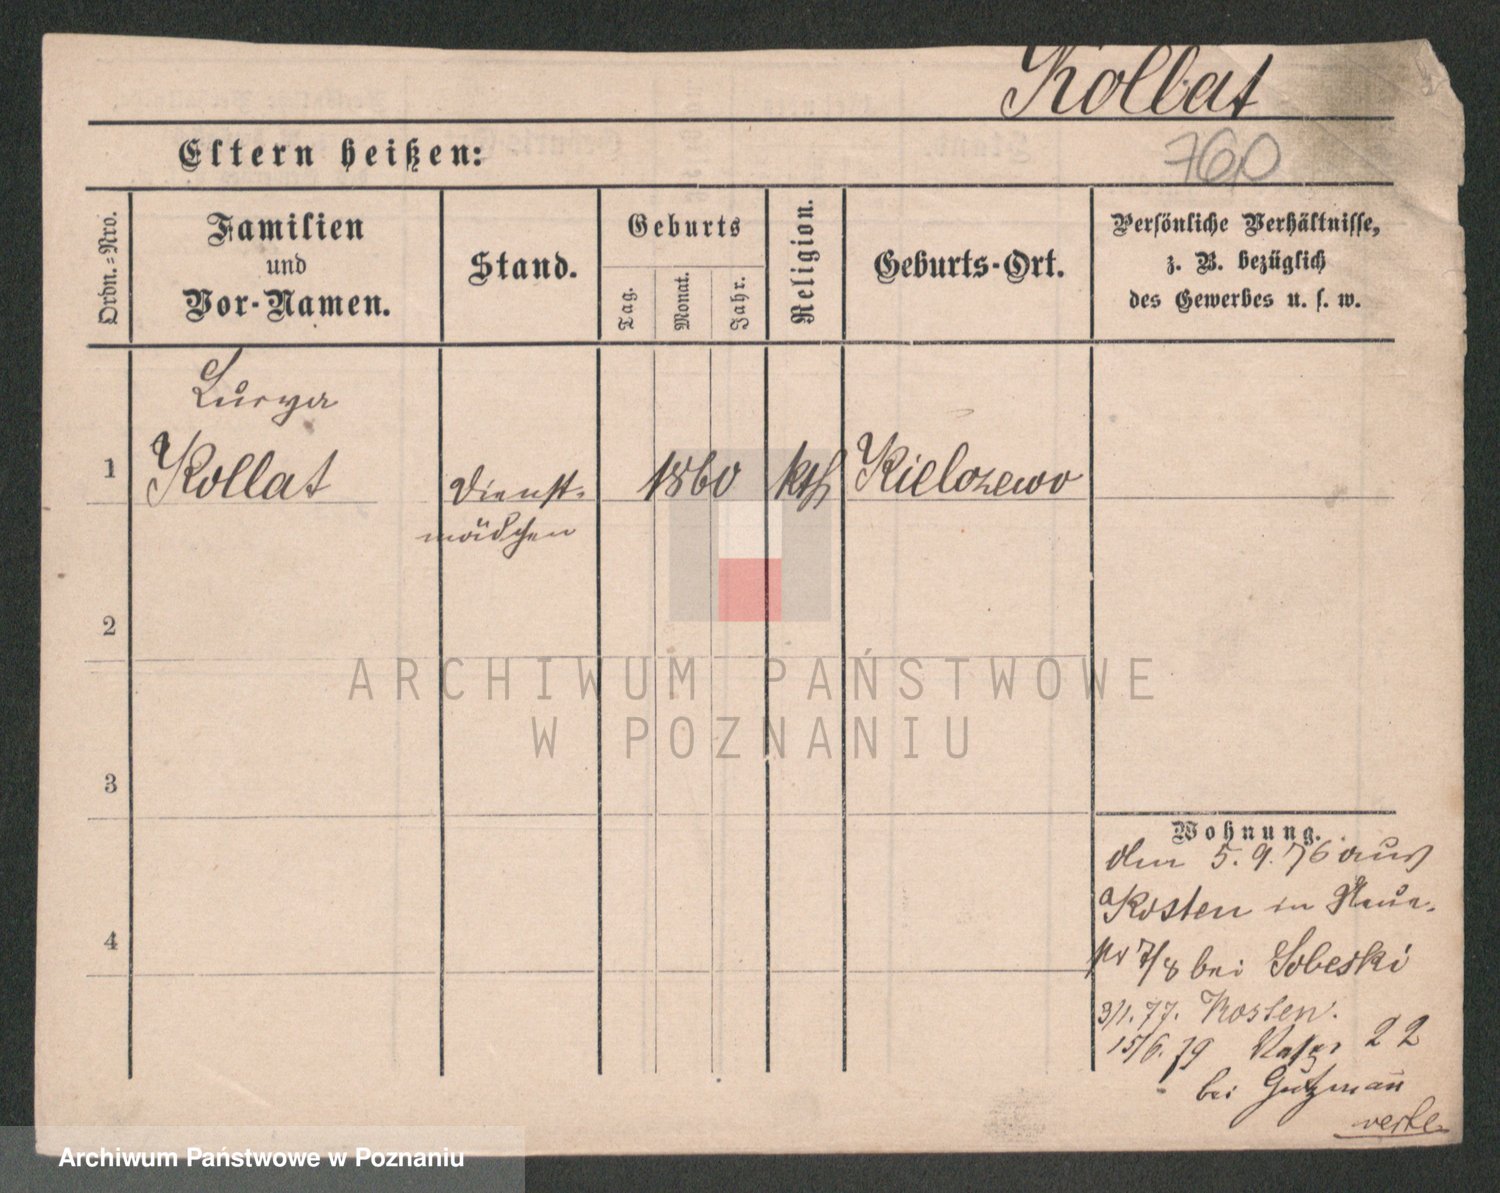 Kollat
760
Eltern heißen:
Ordn.-Nro.
Familien
und
Vor-Namen.
Stand.
Geburts
Tag.
Monat.
Jahr.
Religion.
Geburts-Ort.
Persönliche Verhältnisse,
z. B. bezüglich
des Gewerbes u. s. w.
1
Kollat
Dienst-
mädchen
1860
kth
Kielczewo
2
3
4
Wohnung.
den 5.9.76 aus
Kosten in
7/8 bei Sobeski
3/1.77. Kosten.
15/6.79 22
bei Gutzmañ
ARCHIWUM PAŃSTWOWE
W POZNANIU
Archiwum Państwowe w Poznaniu